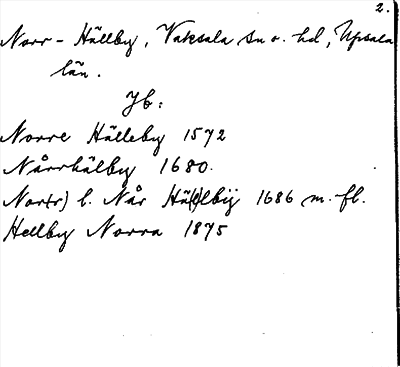 2.
Norr-Hällby, Vaksala sn o. hd, Upsala
län.
Jb:
Norre Hälleby 1572
Nårrhälby 1680.
Nor(r) l. Når Hä(l)lbÿ 1686 m. fl.
Hellby Norra 1875